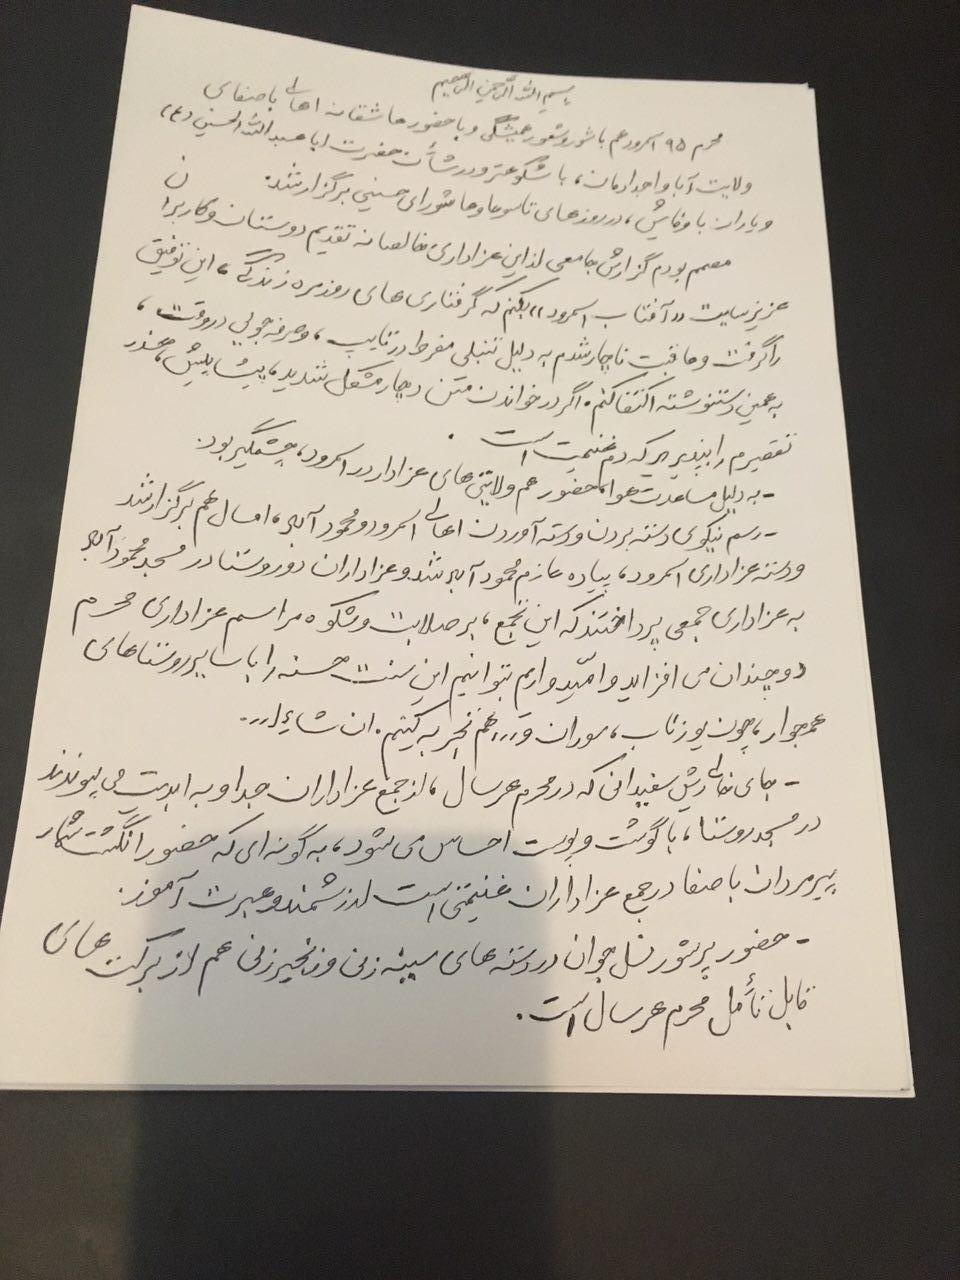 بسم الله الرحمن الرحیم
محرم ۹۵ اسرود هم با شور و شعور همیشگی و با حضور عاشقانه اهالی باصفای
ولایت آبا و اجدادمان، باشکوهتر و در شأن حضرت ابا عبدالله الحسین (ع)
و یاران باوفایش، در روزهای تاسوعا و عاشورای حسینی برگزار شد.
مصمم بودم گزارش جامعی از این عزاداری خالصانه تقدیم دوستان و کاربران
عزیز سایت «آفتاب اسرود» بکنم که گرفتاری های روزمره زندگی، این توفیق
را گرفت و عاقبت ناچار شدم به دلیل تنبلی مفرط در تایپ، و صرفه جویی در وقت،
به همین دستنوشته اکتفا کنم. اگر در خواندن متن دچار مشکل شدید، پیشاپیش، عذر
تقصیرم را بپذیرید که دم غنیمت است.
- به دلیل مساعدت هوا، حضور هم ولایتی های عزادار در اسرود، چشمگیر بود.
- رسم نیکوی دسته بردن و دسته آوردن اهالی اسرود و محمودآباد، امسال هم برگزار شد
و دسته عزاداری اسرود، پیاده عازم محمودآباد شد و عزاداران دو روستا در مسجد محمودآباد
به عزاداری جمعی پرداختند که این تجمع، بر صلابت و شکوه مراسم عزاداری محرم
دوچندان می افزاید و امیدواریم بتوانیم این سنت حسنه را با سایر روستاهای
همجوار، چون یوزناب، سوران و... هم تجربه کنیم. ان شاءا...
- جای خالی ریش سفیدانی که در محرم هر سال، از جمع عزاداران جدا و به ابدیت می پیوندند
در مسجد روستا، با گوشت و پوست احساس می شود، به گونه ای که حضور انگشت شمار
پیرمردان باصفا در جمع عزاداران غنیمتی است ارزشمند و عبرت آموز.
- حضور پرشور نسل جوان در دسته های سینه زنی و زنجیرزنی هم از برکت های
قابل تأمل محرم هر سال است.